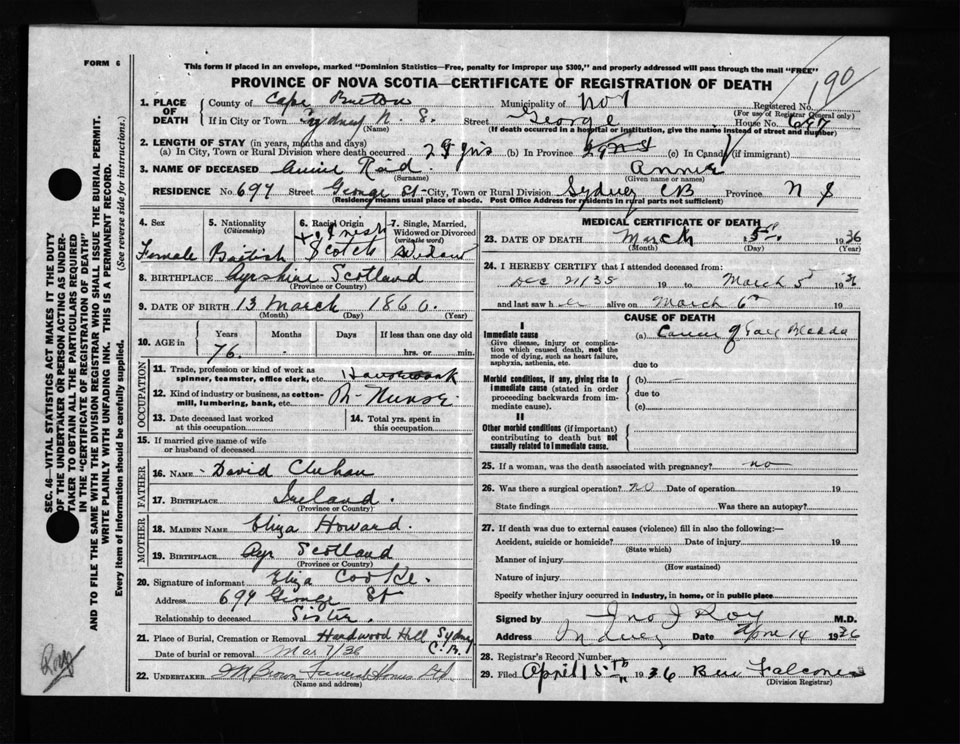 FORM 6
This form if placed in an envelope, marked "Dominion Statistics—Free, penalty for improper use $300," and properly addressed will pass through the mail "FREE"
PROVINCE OF NOVA SCOTIA—CERTIFICATE OF REGISTRATION OF DEATH
190
1. PLACE OF DEATH
County of Cape Breton Municipality of No 1 Registered No.
(For use of Registrar General only)
If in City or Town Sydney N. S. Street George House No.
(Name) (If death occurred in a hospital or institution, give the name instead of street and number)
2. LENGTH OF STAY (in years, months and days)
(a) In City, Town or Rural Division where death occurred 29 yrs (b) In Province (c) In Canada (if immigrant)
3. NAME OF DECEASED Annie Reid Annie
(Surname) (Given name or names)
RESIDENCE No. 697 Street George St City, Town or Rural Division Sydney CB Province N S
(Residence means usual place of abode. Post Office Address for residents in rural parts not sufficient)
4. Sex
Female
5. Nationality
(Citizenship)
British
6. Racial Origin
+ Irish
Scotch
7. Single, Married, Widowed or Divorced
(write the word)
Widow
8. BIRTHPLACE Ayrshire Scotland
(Province or Country)
9. DATE OF BIRTH 13 March 1860.
(Month) (Day) (Year)
10. AGE in
Years Months Days If less than one day old
76. - hrs. or min.
OCCUPATION
11. Trade, profession or kind of work as
spinner, teamster, office clerk, etc. Housework
12. Kind of industry or business, as cotton-
mill, lumbering, bank, etc. Nurse.
13. Date deceased last worked
at this occupation
14. Total yrs. spent in
this occupation
15. If married give name of wife
or husband of deceased
FATHER
16. NAME David
17. BIRTHPLACE Ireland.
(Province or Country)
MOTHER
18. MAIDEN NAME Eliza Howard.
19. BIRTHPLACE Ayr Scotland
(Province or Country)
20. Signature of informant Eliza Cooke.
Address 694 George St
Relationship to deceased Sister.
21. Place of Burial, Cremation or Removal Hardwood Hill Sydney C.B.
Date of burial or removal Mar 7/36
22. UNDERTAKER Brown Funeral Home Ltd
(Name and address)
MEDICAL CERTIFICATE OF DEATH
23. DATE OF DEATH March 5th 1936
(Month) (Day) (Year)
24. I HEREBY CERTIFY that I attended deceased from:
Dec 21/35 19 to March 5 1936
and last saw her alive on March 6th 19
CAUSE OF DEATH
I
Immediate cause
Give disease, injury or complica-
tion which caused death, not the
mode of dying, such as heart failure,
asphyxia, asthenia, etc.
(a) Cancer of Gall Bladder
due to
Morbid conditions, if any, giving rise to
immediate cause (stated in order
proceeding backwards from im-
mediate cause).
(b)
due to
(c)
II
Other morbid conditions (if important)
contributing to death but not
causally related to immediate cause.
25. If a woman, was the death associated with pregnancy? no
26. Was there a surgical operation? no Date of operation 19
State findings Was there an autopsy?
27. If death was due to external causes (violence) fill in also the following:—
Accident, suicide or homicide? Date of injury 19
(State which)
Manner of injury
(How sustained)
Nature of injury
Specify whether injury occurred in industry, in home, or in public place
Signed by Jno J Roy M.D.
Address Sydney Date April 14 1936
28. Registrar's Record Number
29. Filed April 15th 1936 Falconer
(Division Registrar)
SEC. 46—VITAL STATISTICS ACT MAKES IT THE DUTY
OF THE UNDERTAKER OR PERSON ACTING AS UNDER-
TAKER "TO OBTAIN ALL THE PARTICULARS REQUIRED
IN THE "CERTIFICATE OF REGISTRATION OF DEATH"
AND TO FILE THE SAME WITH THE DIVISION REGISTRAR WHO SHALL ISSUE THE BURIAL PERMIT.
WRITE PLAINLY WITH UNFADING INK. THIS IS A PERMANENT RECORD.
Every item of information should be carefully supplied. (See reverse side for instructions.)